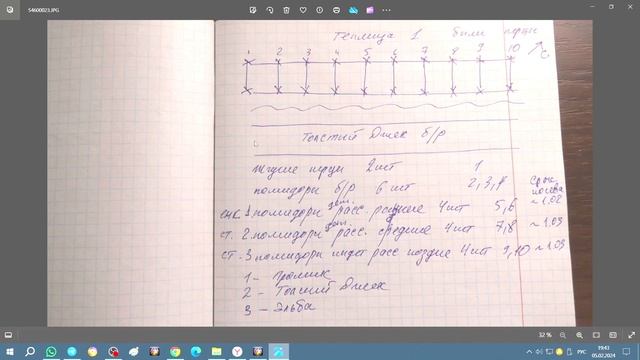 54600023.JPG
Теплица 1 были перцы
1 2 3 4 5 6 7 8 9 10 С
Толстый Джек б/р
жгучие перцы 2 шт 1
помидоры б/р 6 шт 2, 3, 4
Срок посева
1. помидоры дет. расс. ранние 4 шт 5, 6 ~ 1.02
ст. 2. помидоры дет. расс. средние 4 шт 7, 8 ~ 1.03
ст. 3 помидоры индет расс поздние 4 шт 9, 10 ~ 1.03
1 - Громик
2 - Толстый Джек
3 - Эльба
32 %
РУС
19:43
05.02.2024